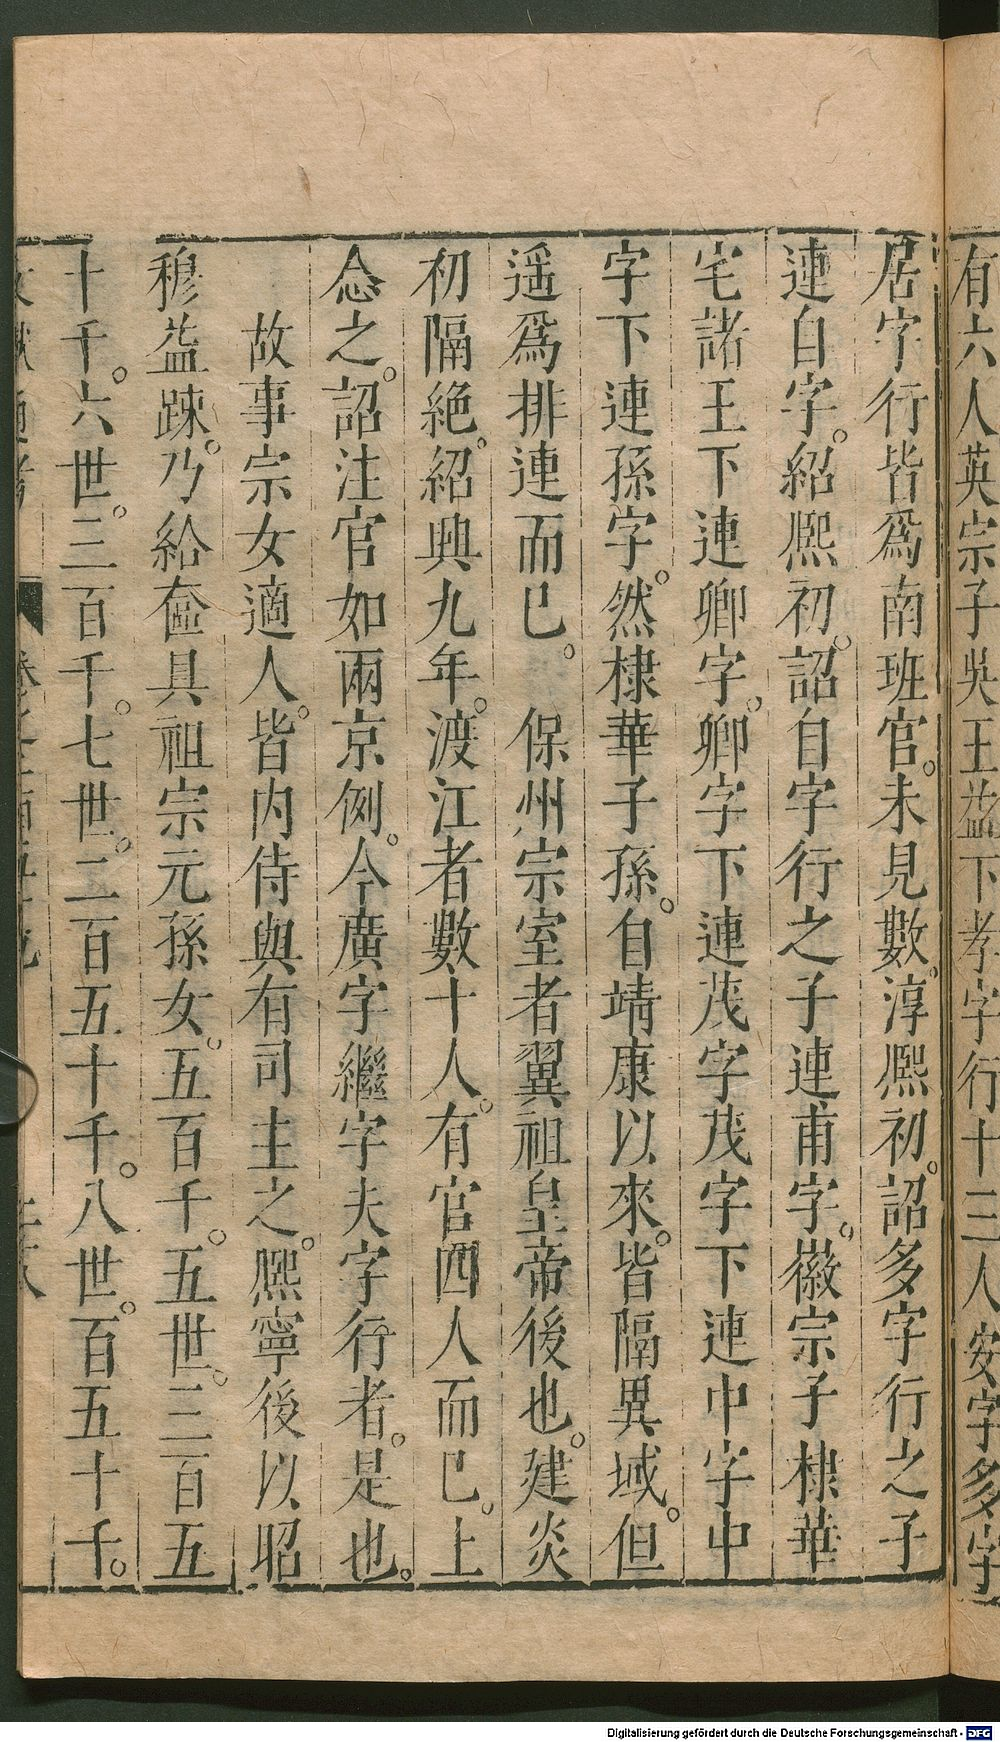 有六人英宗子吳王益下孝字行十三人安字多字
居字行皆爲南班官。未見數。淳熙初。詔多字行之子
連自字。紹熙初。詔自字行之子連甫字。徽宗子棣華
宅諸王下連卿字。卿字下連茂字茂字下連中字中
字下連孫字。然棣華子孫。自靖康以來。皆隔異域。但
遥爲排連而已。　保州宗室者翼祖皇帝後也。建炎
初隔絶。紹興九年。渡江者數十人。有官四人而已。上
念之。詔注官如兩京例。今廣字繼字夫字行者。是也。
故事宗女適人。皆内侍與有司主之。熙寧後以昭
穆益踈。乃給奩具祖宗元孫女。五百千。五世。三百五
十千。六世。三百千。七世。二百五十千。八世。百五十千。
Digitalisierung gefördert durch die Deutsche Forschungsgemeinschaft - DFG